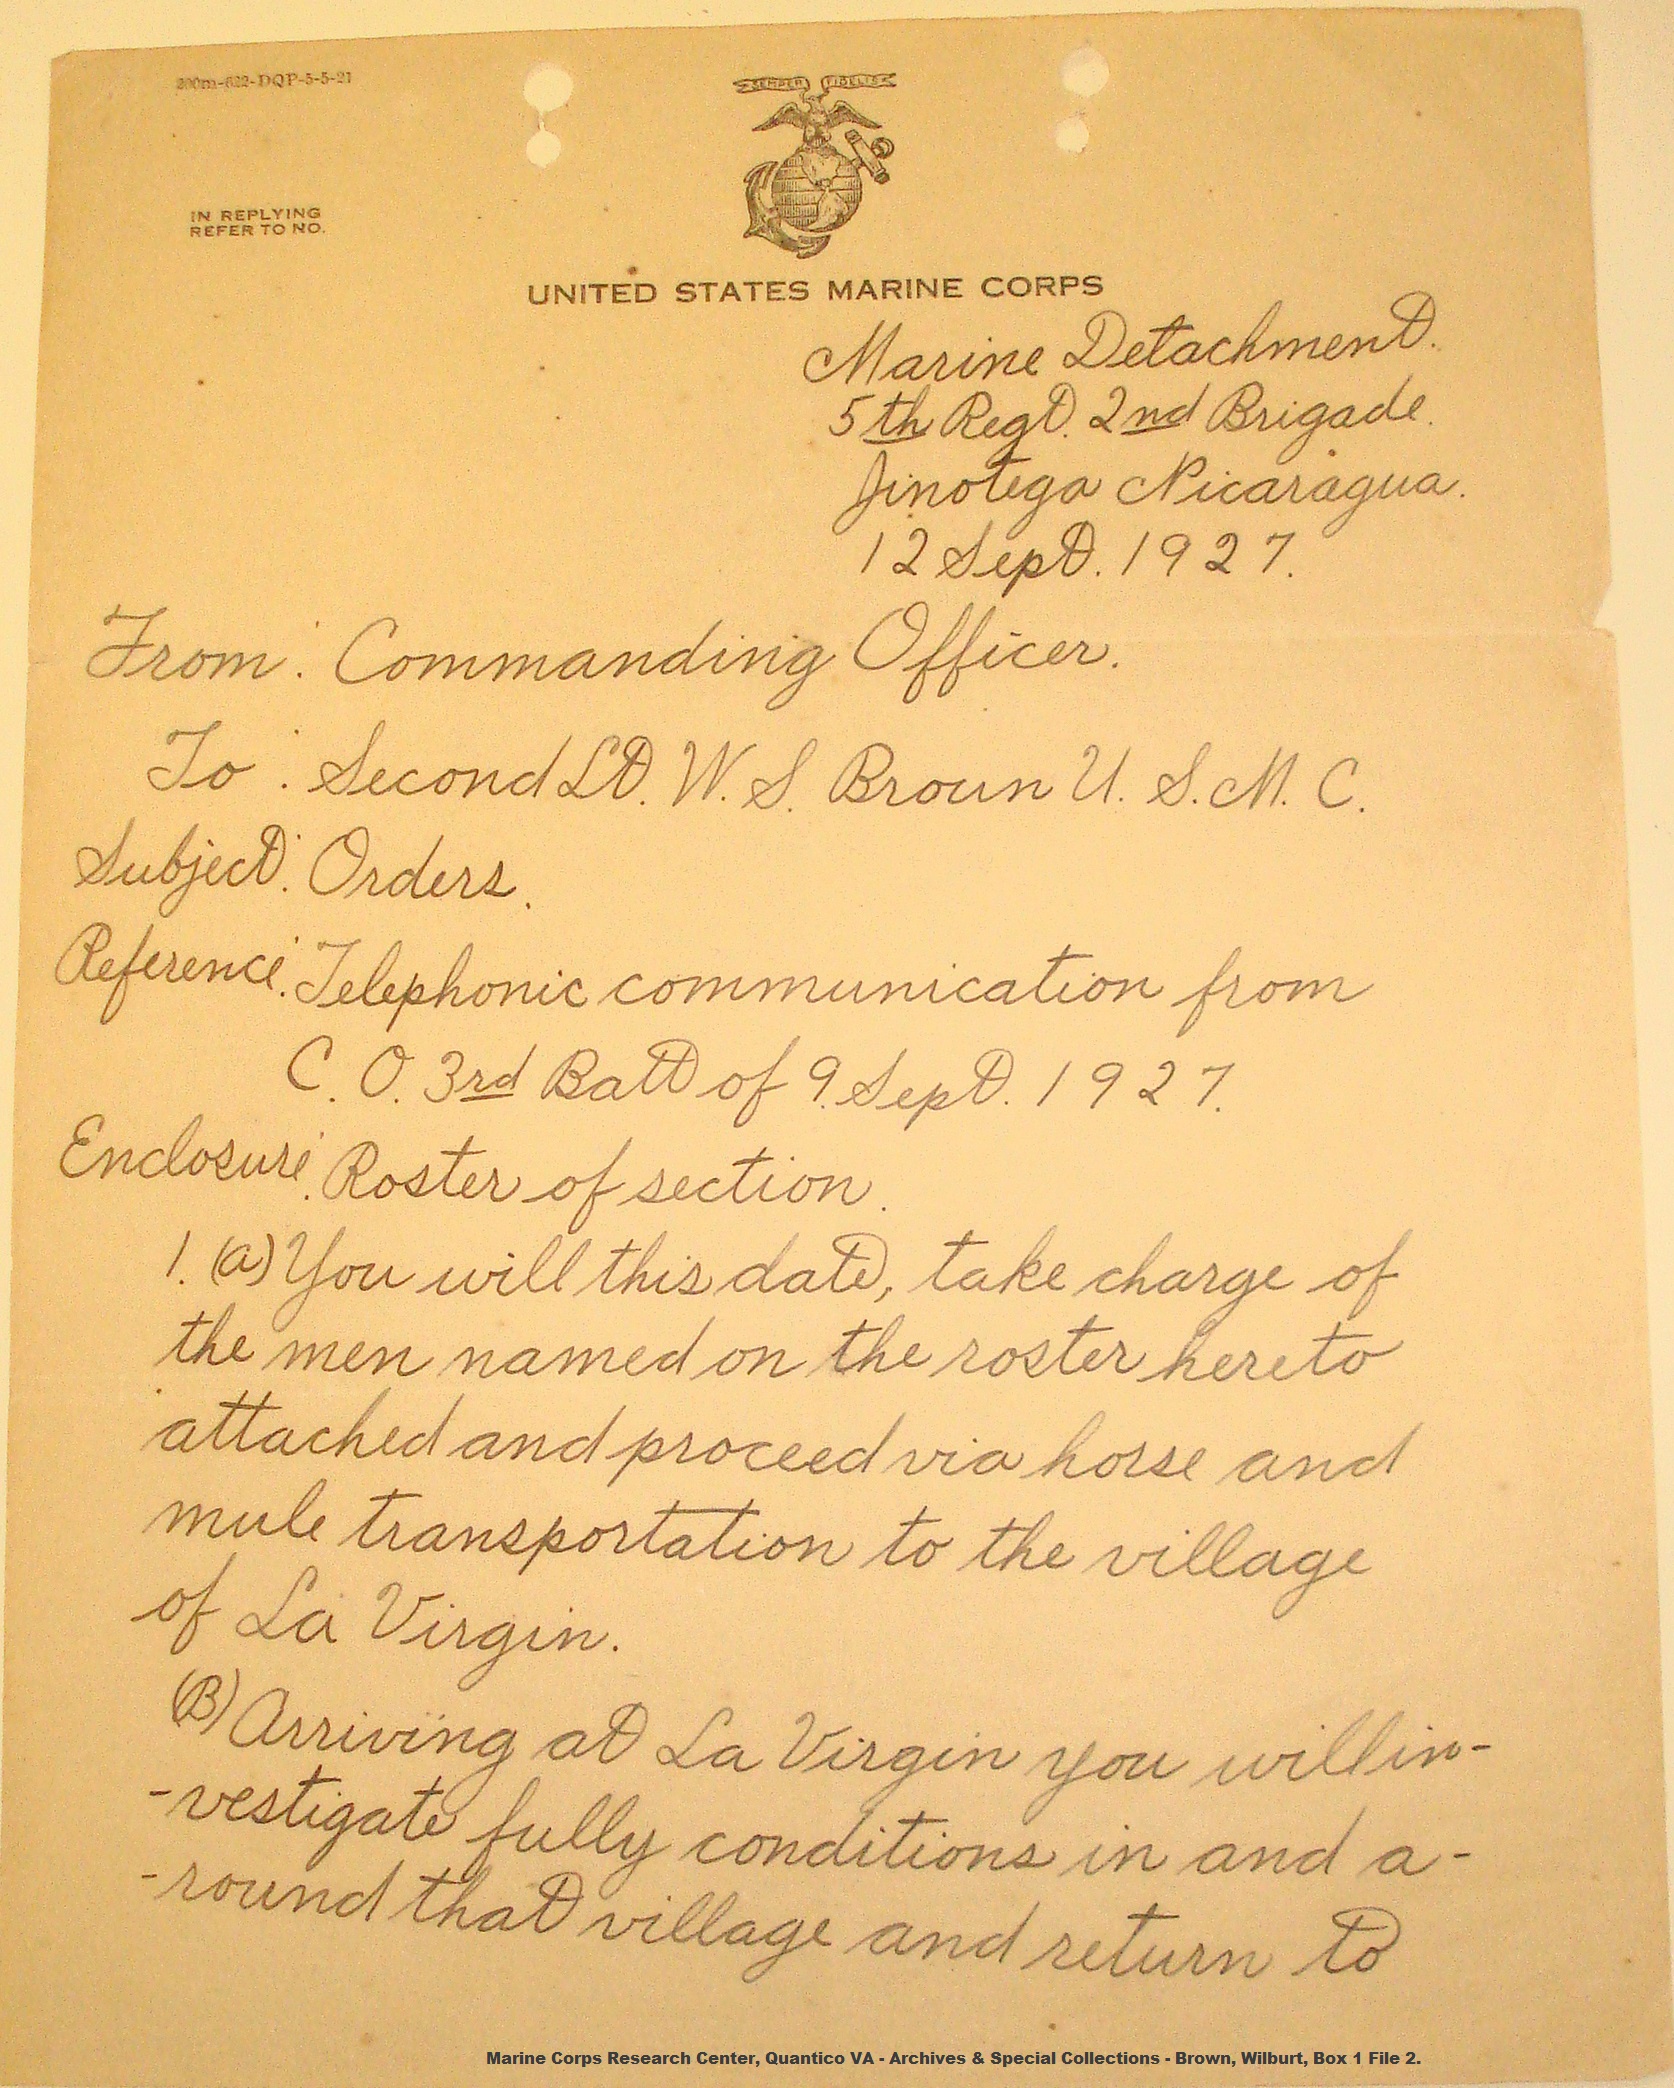 200m-622-DQP-5-5-21
SEMPER FIDELIS
IN REPLYING
REFER TO NO.
UNITED STATES MARINE CORPS
Marine Detachment.
5th Regt. 2nd Brigade.
Jinotega Nicaragua.
12 Sept. 1927.
From: Commanding Officer.
To: Second Lt. W. S. Broun U. S. M. C.
Subject: Orders.
Reference: Telephonic communication from
C. O. 3rd Batt of 9. Sept. 1927.
Enclosure: Roster of section.
1. (a) You will this date, take charge of
the men named on the roster hereto
attached and proceed via horse and
mule transportation to the village
of La Virgin.
(B) Arriving at La Virgin you will in-
-vestigate fully conditions in and a-
-round that village and return to
Marine Corps Research Center, Quantico VA - Archives & Special Collections - Brown, Wilburt, Box 1 File 2.